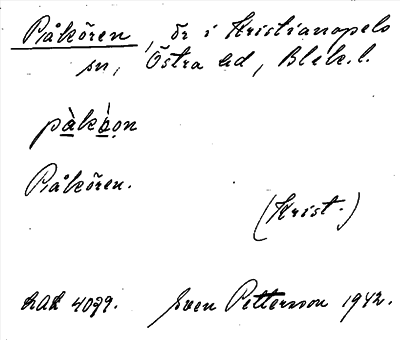 Påkören, ör i Kristianopels
sn, Östra hd, Blek. l.
Påkören.
(Krist.)
Sven Pettersson 1942.